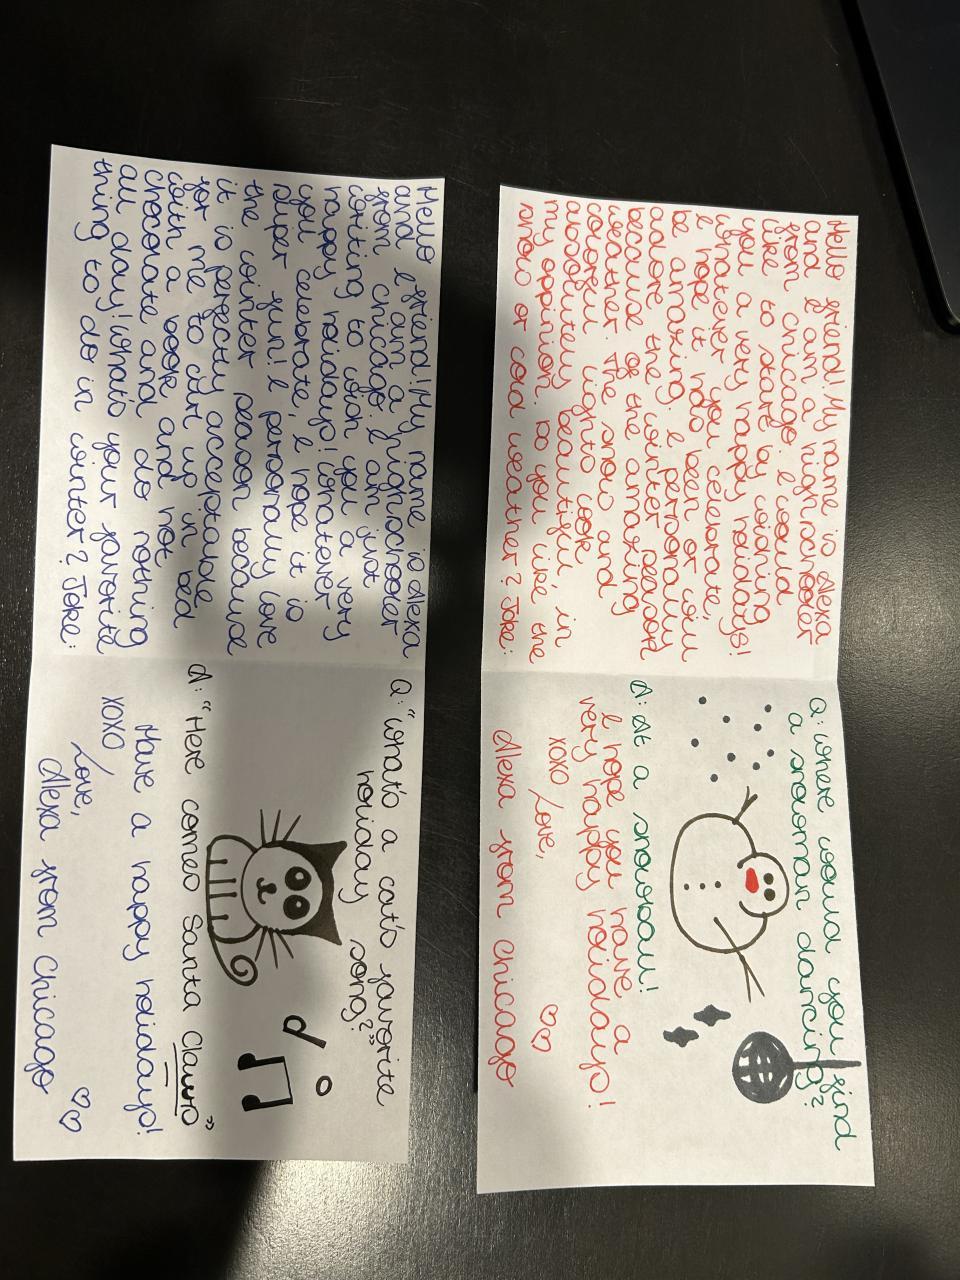 Hello friend! My name is Alexa
and I am a highschooler
from Chicago. I would
like to start by wishing
you a very happy holidays!
Whatever you celebrate,
I hope it has been or will
be amazing. I personally
adore the winter season
because of the amazing
weather. The snow and
colorful lights look
absoulutely beautiful, in
my oppinion. Do you like the
snow or cold weather? Joke:
Q: Where would you find
a snowman dancing?
A: At a snowball!
I hope you have a
very happy holidays!
xoxo Love,
Alexa from Chicago
Hello friend! My name is Alexa
and I am a highschooler
from Chicago. I am just
writing to wish you a very
happy holidays! Whatever
you celebrate, I hope it is
super fun! I personally love
the winter season because
it is perfectly acceptable
for me to curl up in bed
with a book and hot
chocolate and do nothing
all day! What's your favorite
thing to do in winter? Joke:
Q: "What's a cat's favorite
holiday song?"
A: "Here comes Santa Claws"
Have a happy holidays!
xoxo Love,
Alexa from Chicago